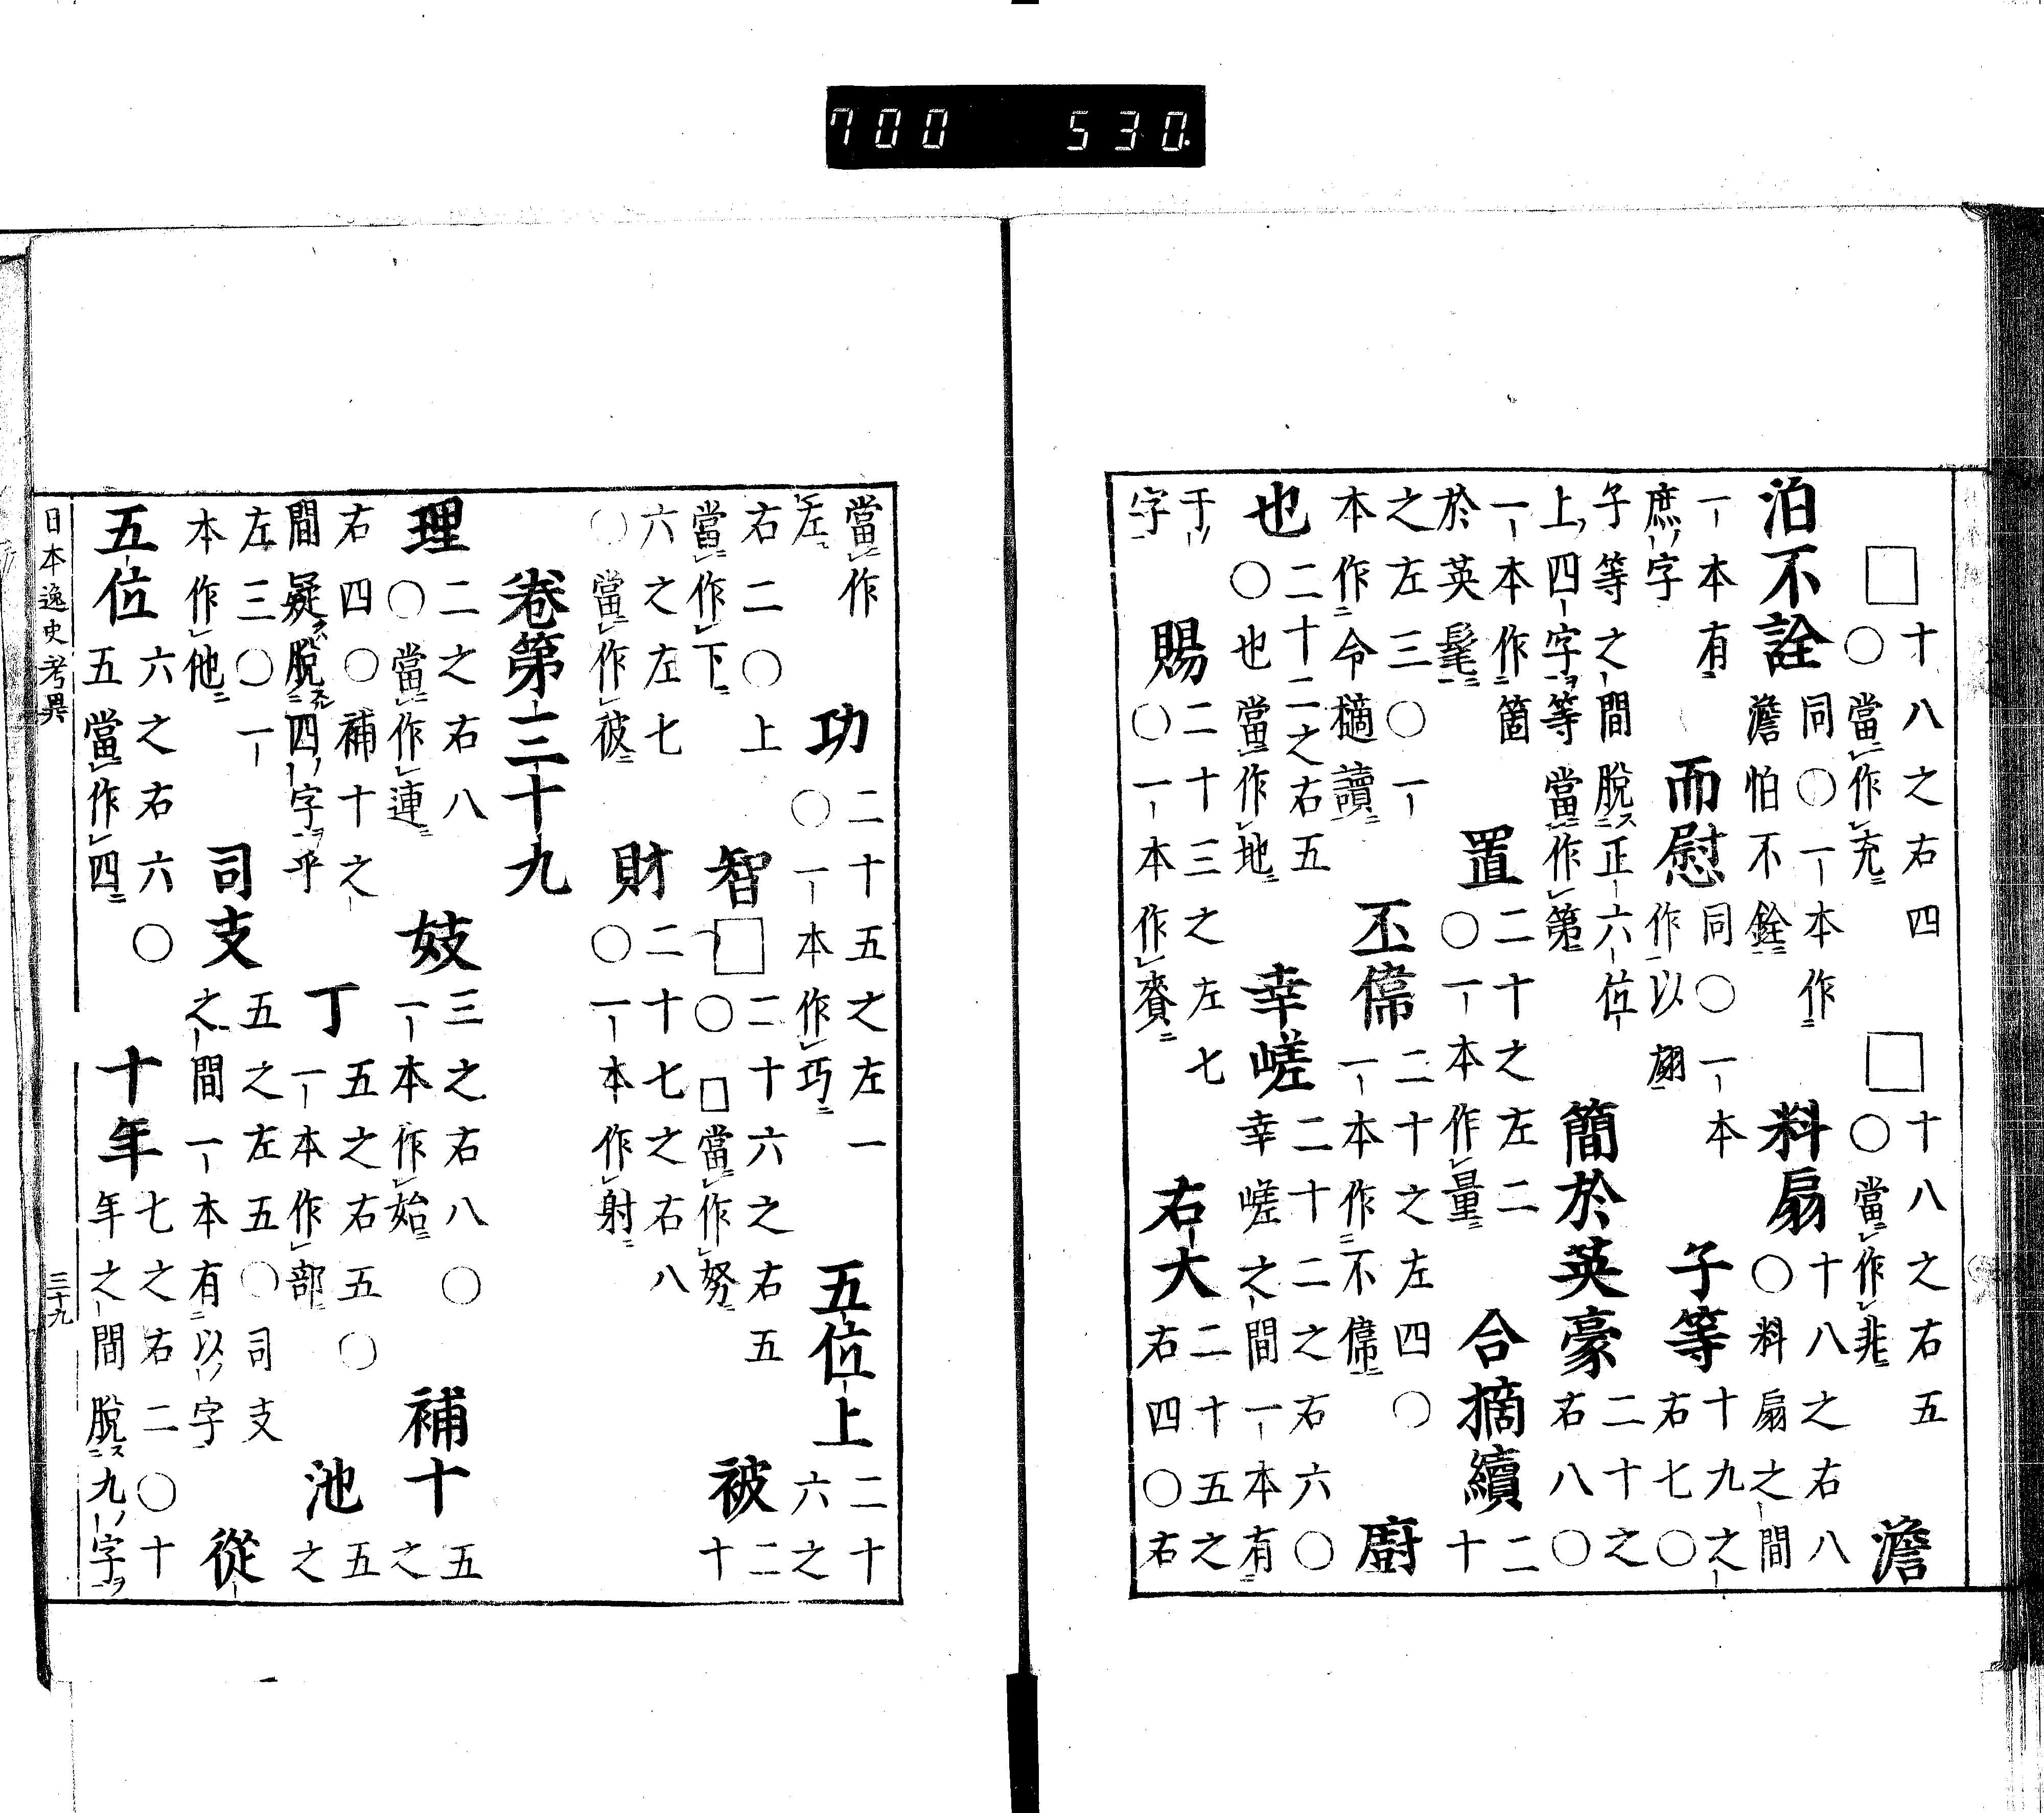 700 530
□十八之右四〇當作充□十八之右五〇當作非澹
泊不詮同〇一本作澹怕不銓料扇十八之右八〇料扇之間
一本有庶字而慰同〇一本作以翅子等十九之右七〇
子等之間脫正六位上四字等當作第簡於英豪二十之右八〇
一本作箇於英髦置二十之左二〇一本作量合摘續二十
之左三〇一本作令擿讀丕偦二十之左四〇一本作不偉廚
也二十二之右五〇也當作地幸嵯二十二之右六〇幸嵯之間一本有
于字賜二十三之左七〇一本作賚右大二十五之右四〇右
當作左功二十五之左一〇一本作巧五位上二十六之
右二〇上當作下智□二十六之右五〇□當作努被二十
六之左七〇當作彼財二十七之右八〇一本作射
卷第三十九
理二之右八〇當作連妓三之右八〇一本作始補十五之
右四〇補十之間疑脫四字乎丁五之右五〇一本作部池五之
左三〇一本作他司支五之左五〇司支之間一本有以字從
五位六之右六〇五當作四十年七之右二〇十年之間脫九字
日本逸史考異 三十九